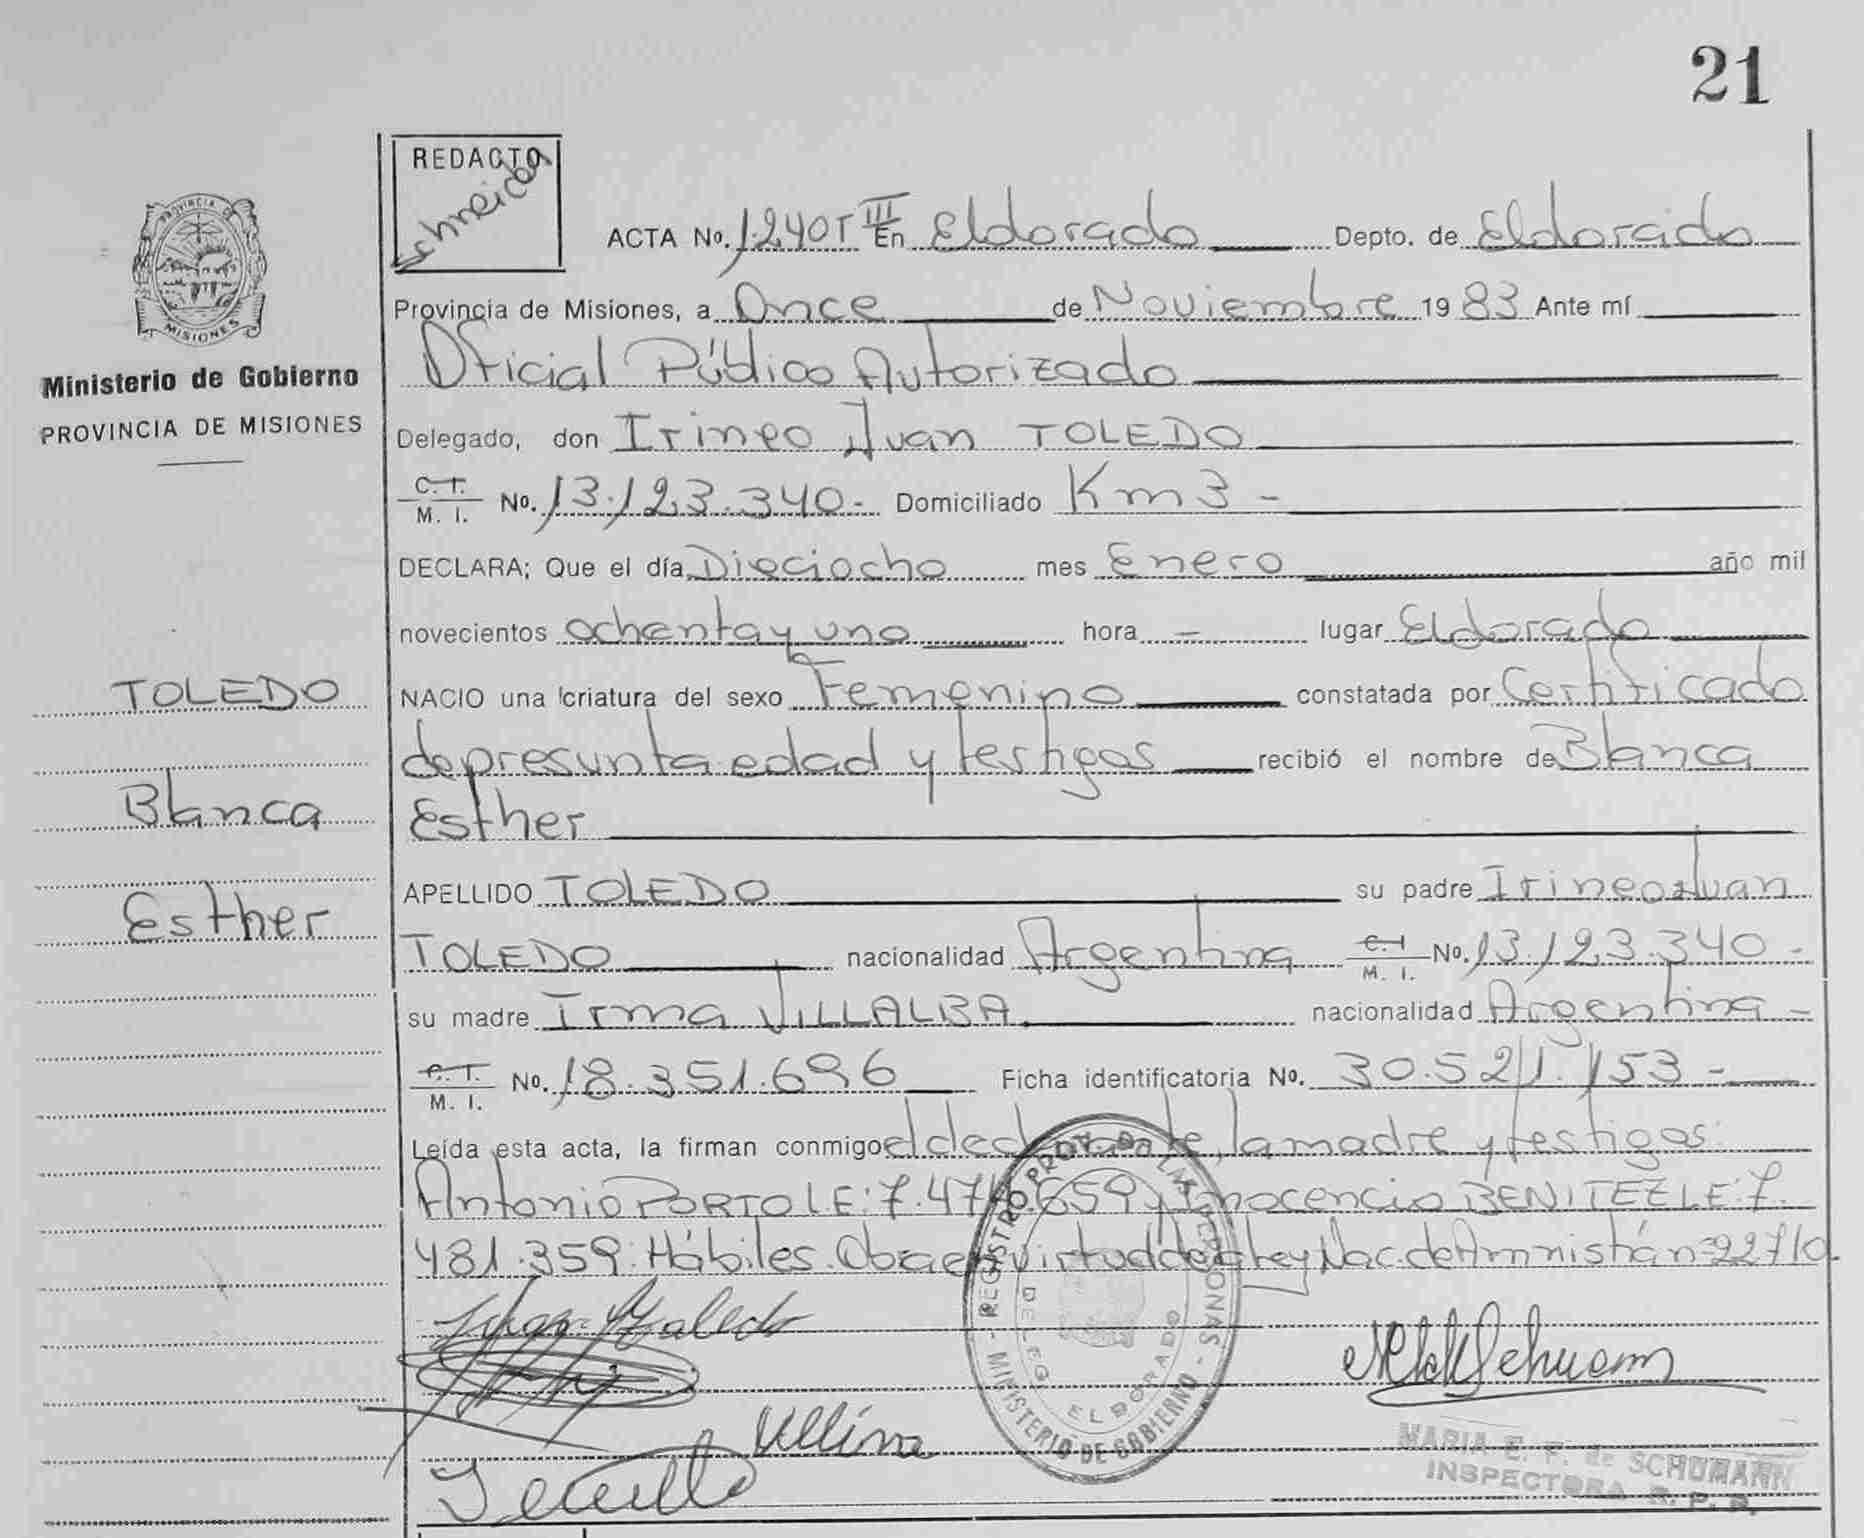 21
REDACTO
Schneider
PROVINCIA DE
MISIONES
Ministerio de Gobierno
PROVINCIA DE MISIONES
ACTA No. 1.240 T III En Eldorado Depto. de Eldorado
Provincia de Misiones, a Once de Noviembre 1983 Ante mí
Oficial Público Autorizado
Delegado, don Irineo Juan TOLEDO
C.I. M. I. No. 13.123.340- Domiciliado Km 3 -
DECLARA; Que el día Dieciocho mes Enero año mil
novecientos ochenta y uno hora - lugar Eldorado
TOLEDO
NACIO una criatura del sexo Femenino constatada por Certificado
de presunta edad y testigos recibió el nombre de Blanca
Blanca
Esther
APELLIDO TOLEDO su padre Irineo Juan
Esther
TOLEDO nacionalidad Argentina C.I. M. I. No. 13.123.340-
su madre Irma VILLALBA nacionalidad Argentina -
C.I. M. I. No. 18.351.696 Ficha identificatoria No. 30.521.153-
Leída esta acta, la firman conmigo el declarante, la madre y testigos:
Antonio PORTO LE: 7.474.659 y Inocencio BENITEZ LE: 7.
481.359. Hábiles. Obra en virtud de la Ley Nac. de Amnistía nº 22710.
REGISTRO PROV. DE LAS PERSONAS - MINISTERIO DE GOBIERNO -
DELEG. ELDORADO
MARIA E. F. de SCHUMANN
INSPECTORA R. P. P.